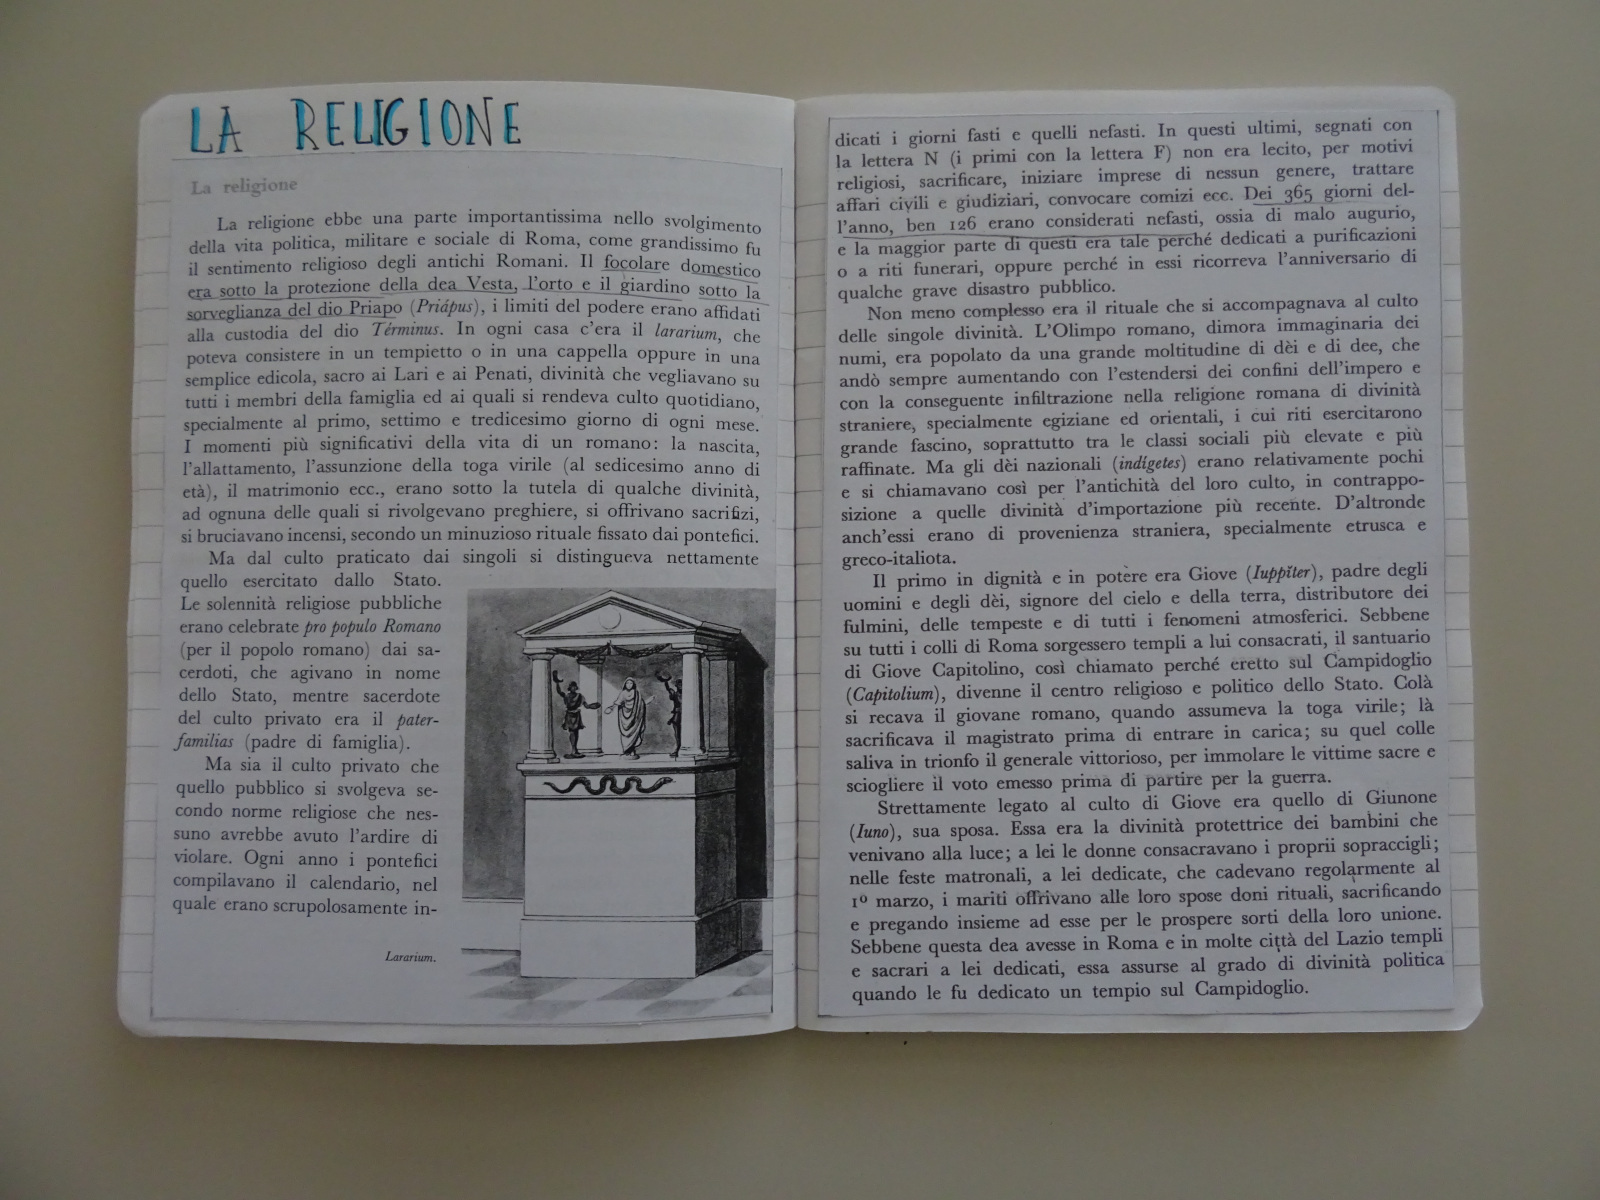 LA RELIGIONE
La religione
La religione ebbe una parte importantissima nello svolgimento
della vita politica, militare e sociale di Roma, come grandissimo fu
il sentimento religioso degli antichi Romani. Il focolare domestico
era sotto la protezione della dea Vesta, l'orto e il giardino sotto la
sorveglianza del dio Priapo (Priápus), i limiti del podere erano affidati
alla custodia del dio Términus. In ogni casa c'era il lararium, che
poteva consistere in un tempietto o in una cappella oppure in una
semplice edicola, sacro ai Lari e ai Penati, divinità che vegliavano su
tutti i membri della famiglia ed ai quali si rendeva culto quotidiano,
specialmente al primo, settimo e tredicesimo giorno di ogni mese.
I momenti più significativi della vita di un romano: la nascita,
l'allattamento, l'assunzione della toga virile (al sedicesimo anno di
età), il matrimonio ecc., erano sotto la tutela di qualche divinità,
ad ognuna delle quali si rivolgevano preghiere, si offrivano sacrifizi,
si bruciavano incensi, secondo un minuzioso rituale fissato dai pontefici.
Ma dal culto praticato dai singoli si distingueva nettamente
quello esercitato dallo Stato.
Le solennità religiose pubbliche
erano celebrate pro populo Romano
(per il popolo romano) dai sa-
cerdoti, che agivano in nome
dello Stato, mentre sacerdote
del culto privato era il pater-
familias (padre di famiglia).
Ma sia il culto privato che
quello pubblico si svolgeva se-
condo norme religiose che nes-
suno avrebbe avuto l'ardire di
violare. Ogni anno i pontefici
compilavano il calendario, nel
quale erano scrupolosamente in-
Lararium.
dicati i giorni fasti e quelli nefasti. In questi ultimi, segnati con
la lettera N (i primi con la lettera F) non era lecito, per motivi
religiosi, sacrificare, iniziare imprese di nessun genere, trattare
affari civili e giudiziari, convocare comizi ecc. Dei 365 giorni del-
l'anno, ben 126 erano considerati nefasti, ossia di malo augurio,
e la maggior parte di questi era tale perché dedicati a purificazioni
o a riti funerari, oppure perché in essi ricorreva l'anniversario di
qualche grave disastro pubblico.
Non meno complesso era il rituale che si accompagnava al culto
delle singole divinità. L'Olimpo romano, dimora immaginaria dei
numi, era popolato da una grande moltitudine di dèi e di dee, che
andò sempre aumentando con l'estendersi dei confini dell'impero e
con la conseguente infiltrazione nella religione romana di divinità
straniere, specialmente egiziane ed orientali, i cui riti esercitarono
grande fascino, soprattutto tra le classi sociali più elevate e più
raffinate. Ma gli dèi nazionali (indígetes) erano relativamente pochi
e si chiamavano così per l'antichità del loro culto, in contrappo-
sizione a quelle divinità d'importazione più recente. D'altronde
anch'essi erano di provenienza straniera, specialmente etrusca e
greco-italiota.
Il primo in dignità e in potere era Giove (Iuppĭter), padre degli
uomini e degli dèi, signore del cielo e della terra, distributore dei
fulmini, delle tempeste e di tutti i fenomeni atmosferici. Sebbene
su tutti i colli di Roma sorgessero templi a lui consacrati, il santuario
di Giove Capitolino, così chiamato perché eretto sul Campidoglio
(Capitolium), divenne il centro religioso e politico dello Stato. Colà
si recava il giovane romano, quando assumeva la toga virile; là
sacrificava il magistrato prima di entrare in carica; su quel colle
saliva in trionfo il generale vittorioso, per immolare le vittime sacre e
sciogliere il voto emesso prima di partire per la guerra.
Strettamente legato al culto di Giove era quello di Giunone
(Iuno), sua sposa. Essa era la divinità protettrice dei bambini che
venivano alla luce; a lei le donne consacravano i proprii sopraccigli;
nelle feste matronali, a lei dedicate, che cadevano regolarmente al
1º marzo, i mariti offrivano alle loro spose doni rituali, sacrificando
e pregando insieme ad esse per le prospere sorti della loro unione.
Sebbene questa dea avesse in Roma e in molte città del Lazio templi
e sacrari a lei dedicati, essa assurse al grado di divinità politica
quando le fu dedicato un tempio sul Campidoglio.